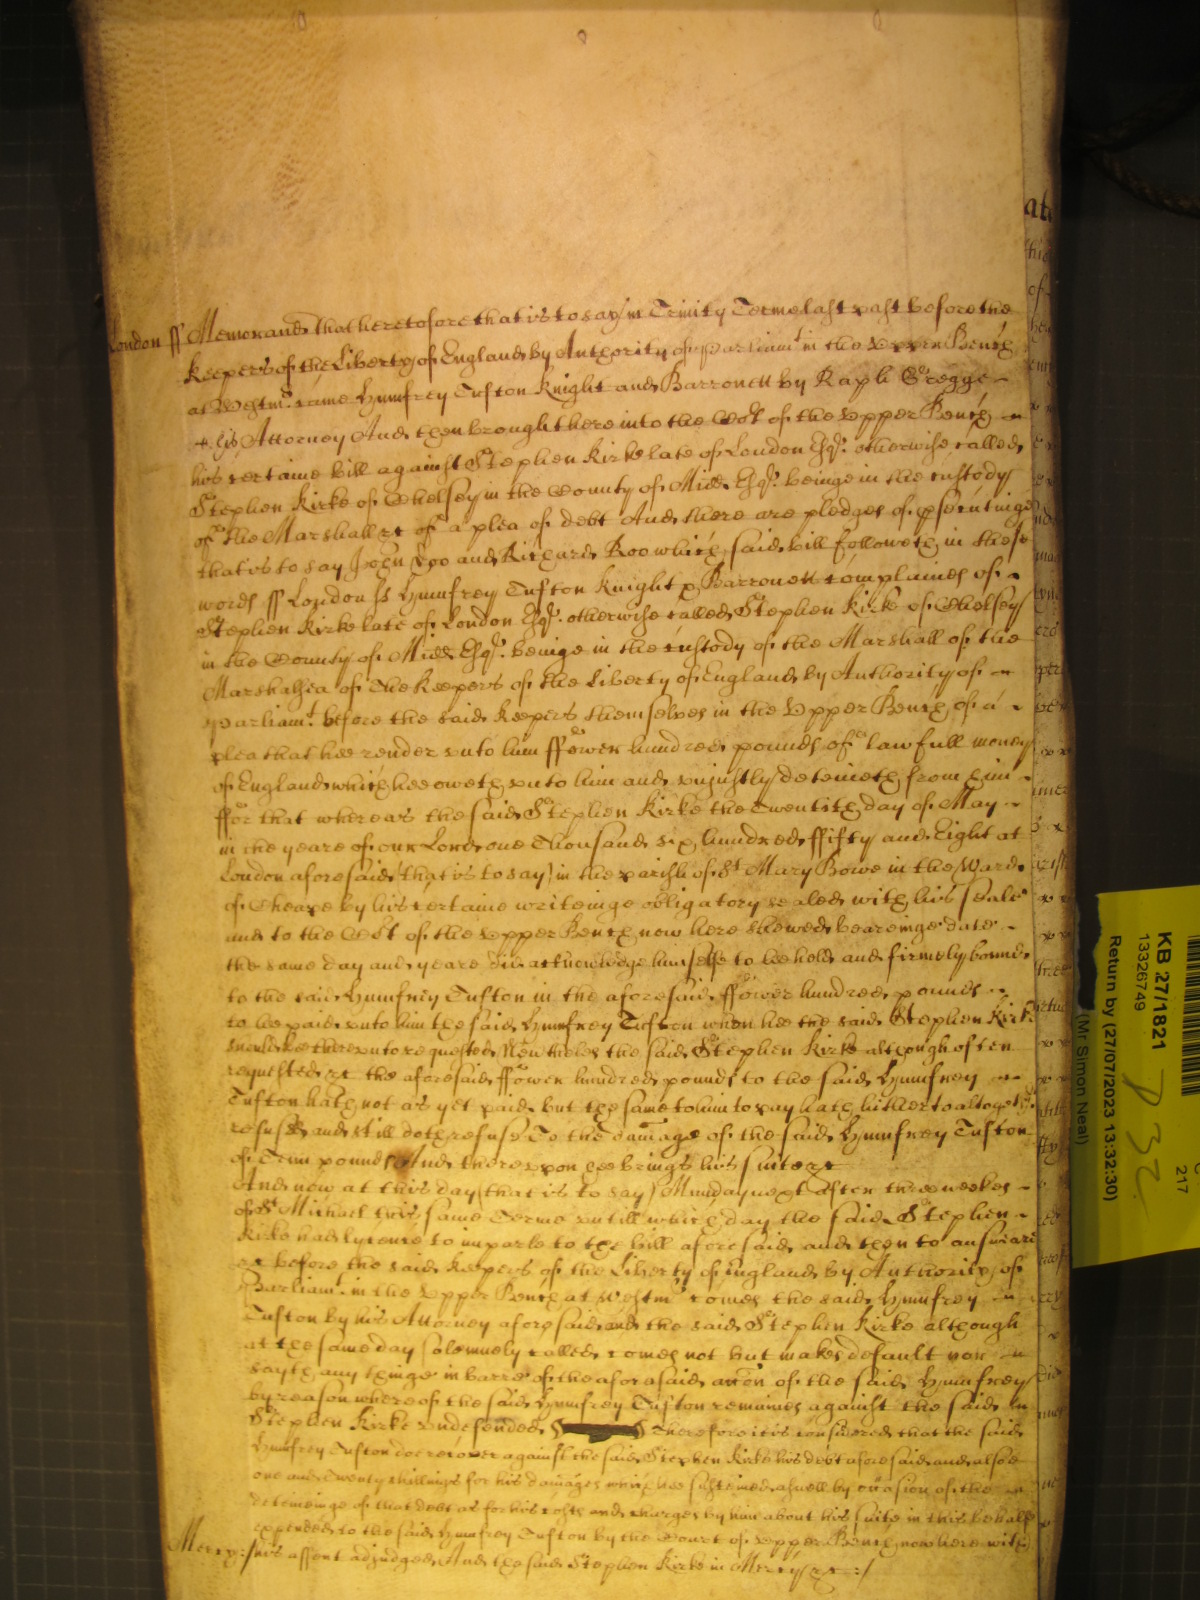 London ss Memorand that heretofore that is to say in Trinity Terme last past before the
Keepers of the Liberty of England by Authority of Parliamt in the Upper Bench
at Westmr came Humfrey Tufton Knight and Barronett by Raph Gregge
his Attorney And then brought here into the Cort of the Upper Bench
his certaine bill against Stephen Kirke late of London Esqr. otherwise called
Stephen Kirke of Chelsey in the County of Midd Esqr. beinge in the custody
of the Marshall &c of a plea of debt And there are pledges of psecutinge
that is to say John Doo and Richard Roo which said bill followeth in these
words ss London ss Humfrey Tufton Knight & Barronett complaines of
Stephen Kirke late of London Esqr. otherwise called Stephen Kirk of Chelsey
in the County of Midd Esqr. beinge in the custody of the Marshall of the
Marshalsea of the Keepers of the Liberty of England by Authority of
Parliamt. before the said Keepers themselves in the Upper Bench of a
plea that hee render unto him ffower hundred pounds of lawfull money
of England which hee oweth unto him and uniustly deteineth from him
ffor that whereas the said Stephen Kirke the Twentith day of May
in the yeare of our Lord one Thousand six hundred ffifty and Eight at
London aforesaid that is to say in the parish of St Mary Bowe in the Ward
of Cheape by his certaine writeinge obligatory sealed with his seale
and to the Cort of the Upper Bench now here shewed beareinge date
the same day and yeare did acknowledge himselfe to be held and firmely bound
to the said Humfrey Tufton in the aforesaid ffower hundred pounds
to be paid unto him the said Humfrey Tufton when hee the said Stephen Kirke
should be thereunto requested Neutheles the said Stephen Kirke although often
requested &c the aforesaid ffower hundred pounds to the said Humfrey
Tufton hath not as yet paid but the same to him to pay hath hitherto altogethr
refused and still doth refuse To the damage of the said Humfrey Tufton
of Tenn pounds And thereupon hee brings his suite &c
And now at this day that is to say Munday next after three weekes
of St Michael this same Terme untill which day the said Stephen
Kirke had lycence to imparle to the bill aforesaid and then to answeare
&c before the said Keepers of the Liberty of England by Authority of
Parliamt. in the Upper Bench at Westmr comes the said Humfrey
Tufton by his Attorney aforesaid and the said Stephen Kirke although
at the same day solemnely called comes not but makes default nor
sayth any thinge in barre of the aforesaid accon of the said Humfrey
by reason whereof the said Humfrey Tufton remaines against the said
Stephen Kirke undefended Therefore it is considered that the said
Humfrey Tufton doe recover against the said Stephen Kirke his debt aforesaid and alsoe
one and Twenty shillings for his damages which hee susteined aswell by occasion of the
deteineinge of that debt as for his costs and charges by him about his suite in this behalfe
expended to the said Humfrey Tufton by the Court of Upper Bench now here with
Mercy :/ his assent adjudged And the said Stephen Kirke in Mercy &c :/
KB 27/1821
13326749
Return by (27/07/2023 13:32:30)
(Mr Simon Neal)
217